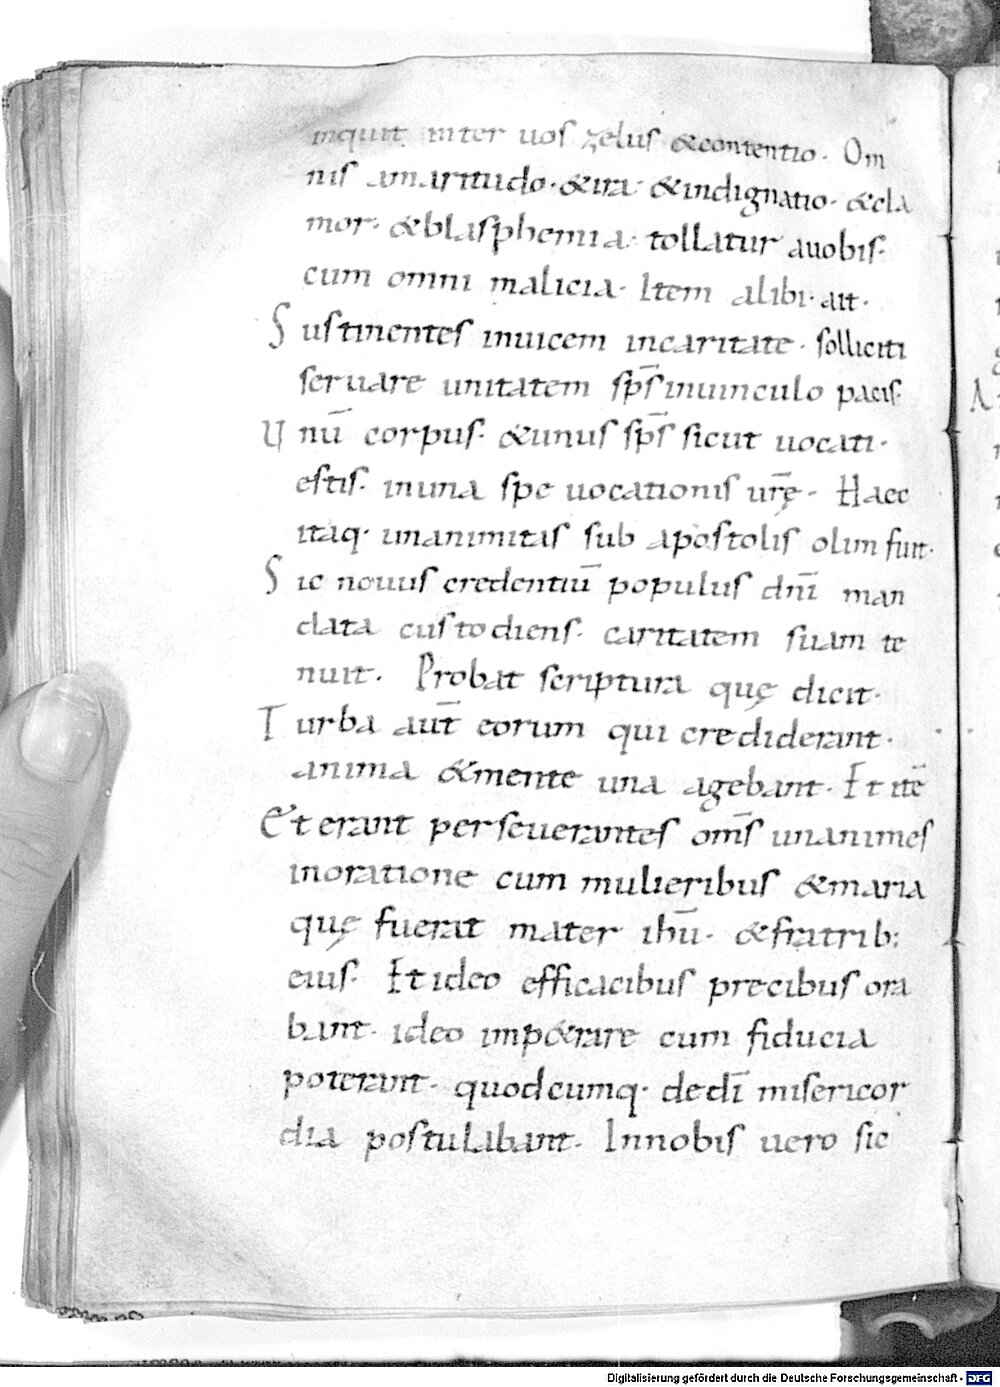 inquit inter uos zelus &contentio. Om
nis amaritudo. &ira. &indignatio. &cla
mor. &blasphemia. tollatur auobis.
cum omni malicia. Item alibi. ait.
Sustinentes inuicem incaritate. solliciti
seruare unitatem sp̄s inuinculo pacis.
Unū corpus. &unus sp̄s sicut uocati.
estis. inuna spe uocationis ur̄ę. Haec
itaq. unanimitas sub apostolis olim fuit.
Sic nouus credentiū populus dn̄i man
data custodiens. caritatem suam te
nuit. Probat scriptura quę dicit.
Turba aut̄ eorum qui crediderant.
anima &mente una agebant. Et itē
Et erant perseuerantes om̄s unanimes
inoratione cum mulieribus &maria
quę fuerat mater ihū. &fratrib;
eius. Et ideo efficacibus precibus ora
bant. ideo imp&rare cum fiducia
poterant. quodcumq. dedī misericor
dia postulabant. Innobis uero sic
Digitalisierung gefördert durch die Deutsche Forschungsgemeinschaft - DFG